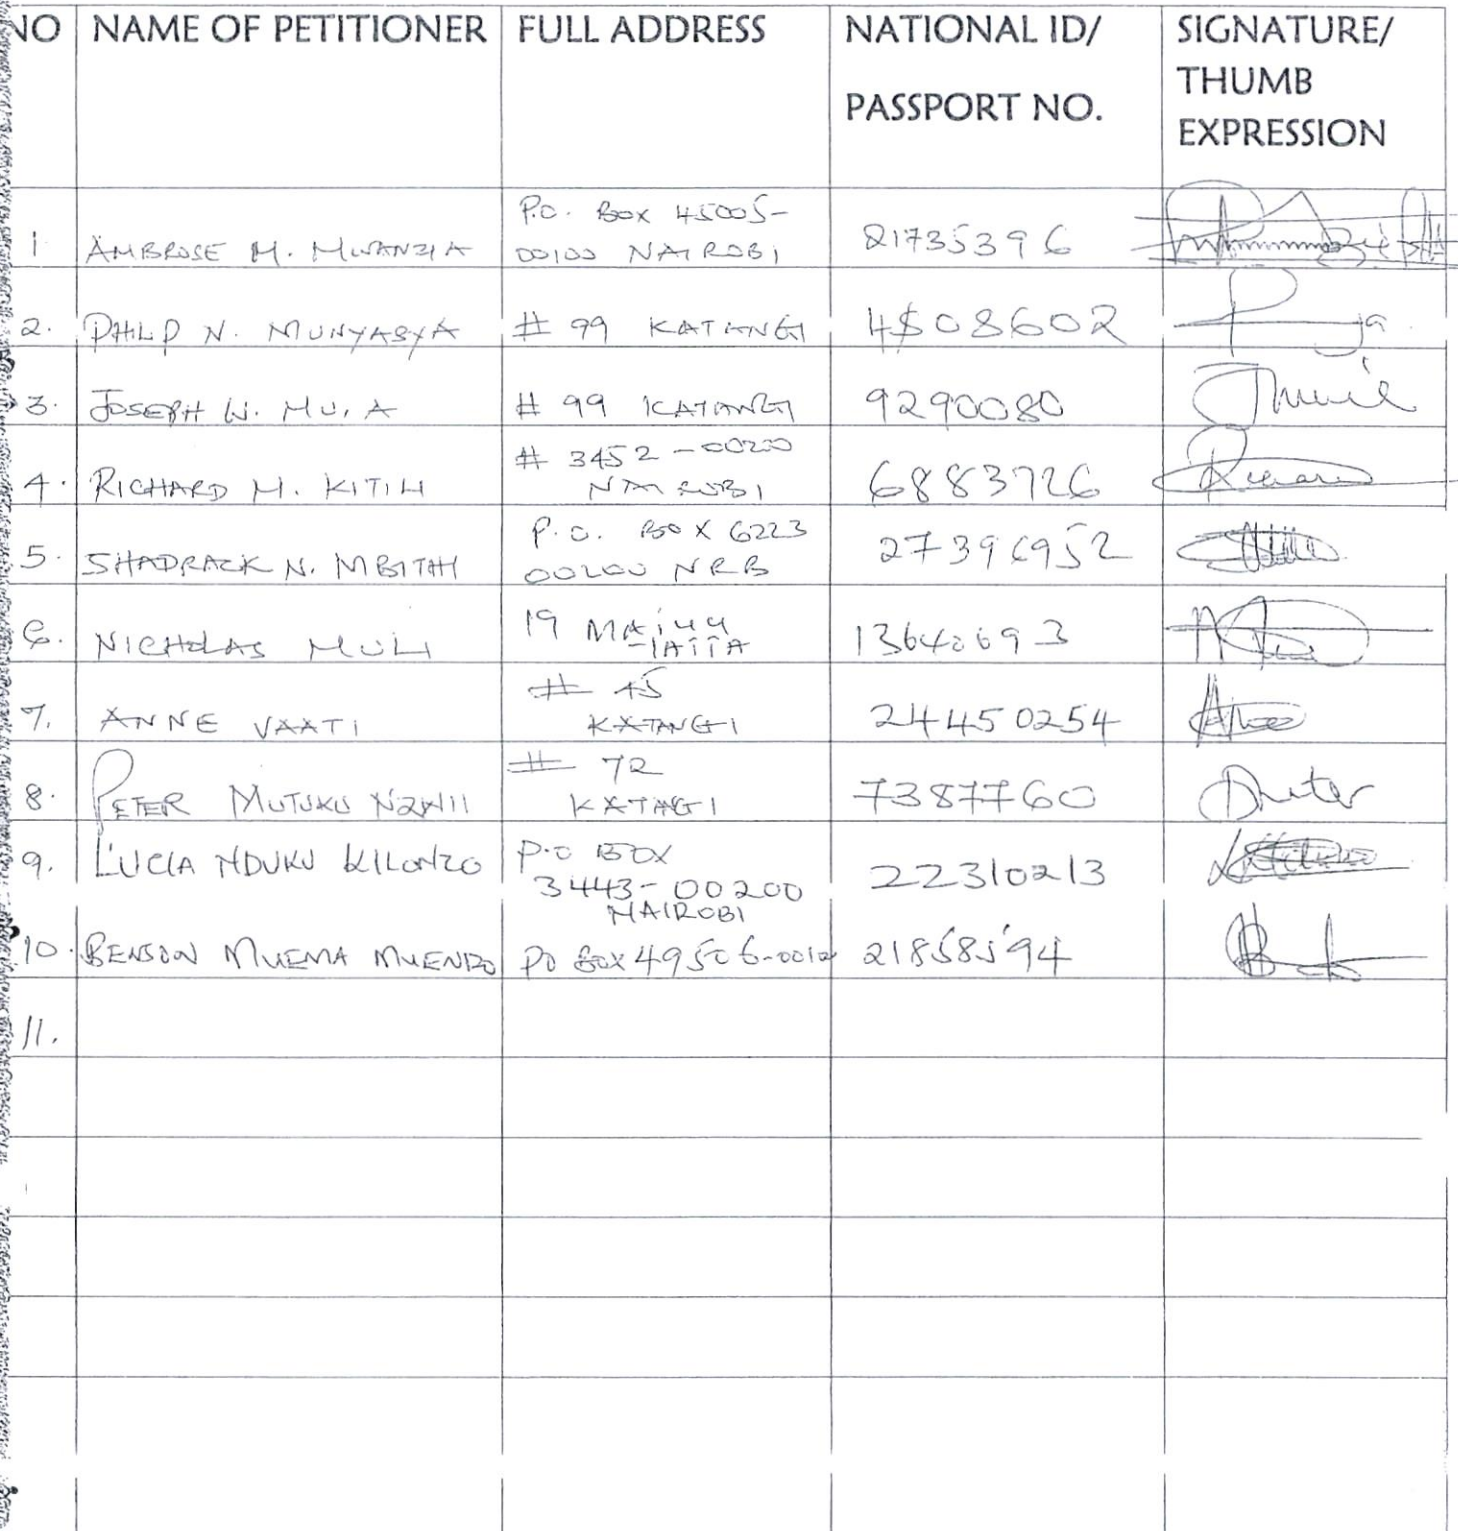 NO NAME OF PETITIONER FULL ADDRESS NATIONAL ID/ PASSPORT NO. SIGNATURE/ THUMB EXPRESSION
1 AMBROSE M. MWANZIA P.O. BOX 45005- 00100 NAIROBI 21735396
2. PHILP N. MUNYASYA # 99 KATANGI 4508602
3. JOSEPH W. MUIA # 99 KATANGI 9290080
4. RICHARD M. KITILI # 3452-00200 NAIROBI 6883726
5. SHADRACK N. MBITHI P.O. BOX 6223 00200 NRB 27396952
6. NICHOLAS MULI 19
7. ANNE VAATI # 45 KATANGI 24450254
8. PETER MUTUKU # 72 KATANGI 7387760
9. LUCIA NDUKU KILONZO P.O BOX 3443-00200 NAIROBI 22310213
10. BENSON MUEMA MUENDO PO BOX 49506- 21858594
11.